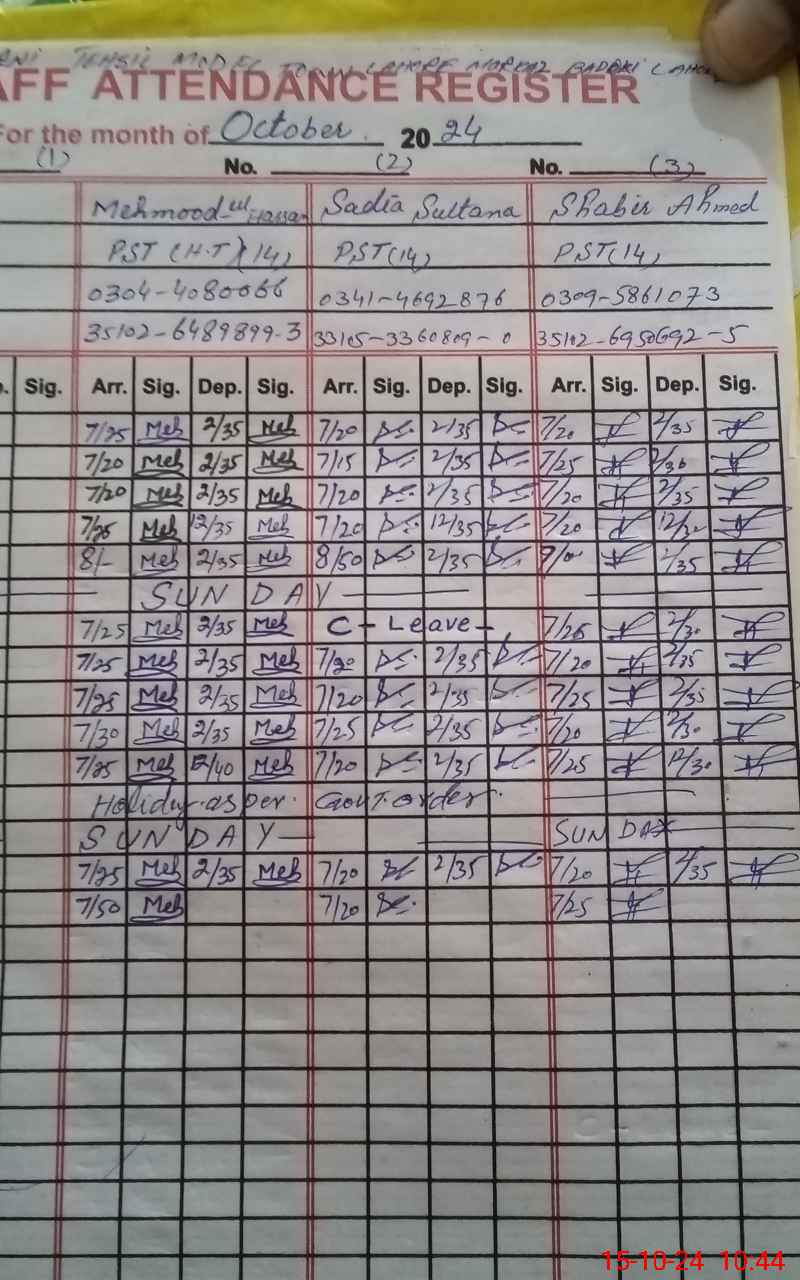 TEHSIL MODEL TOWN LAHORE MARKAZ
AFF ATTENDANCE REGISTER
For the month of October 2024
(1) No. (2) No. (3)
Mehmood-ul Hassan Sadia Sultana Shabir Ahmed
PST (H.T)(14) PST(14) PST(14)
0304-4080066 0341-4692876 0309-5861073
35102-6489899-3 33105-3360809-0 35102-6950692-5
Sig. Arr. Sig. Dep. Sig. Arr. Sig. Dep. Sig. Arr. Sig. Dep. Sig.
7/25 Meh 2/35 Meh 7/20 2/35 7/20 2/35
7/20 Meh 2/35 Meh 7/15 2/35 7/25 2/30
7/20 Meh 2/35 Meh 7/20 2/35 7/20 2/35
7/25 Meh 12/35 Meh 7/20 12/35 7/20 12/30
8/- Meh 2/35 Meh 8/50 2/35 2/35
SUNDAY
7/25 Meh 2/35 Meh C - Leave - 7/25 2/30
7/25 Meh 2/35 Meh 7/20 2/35 7/20 2/35
7/25 Meh 2/35 Meh 7/20 2/35 7/25 2/35
7/30 Meh 2/35 Meh 7/25 2/35 7/20 2/30
7/25 Meh /40 Meh 7/20 2/35 7/25 12/30
Holiday as per Govt order.
SUNDAY SUNDAY
7/25 Meh 2/35 Meh 7/20 2/35 7/20 2/35
7/50 Meh 7/20 7/25
15-10-24 10:44